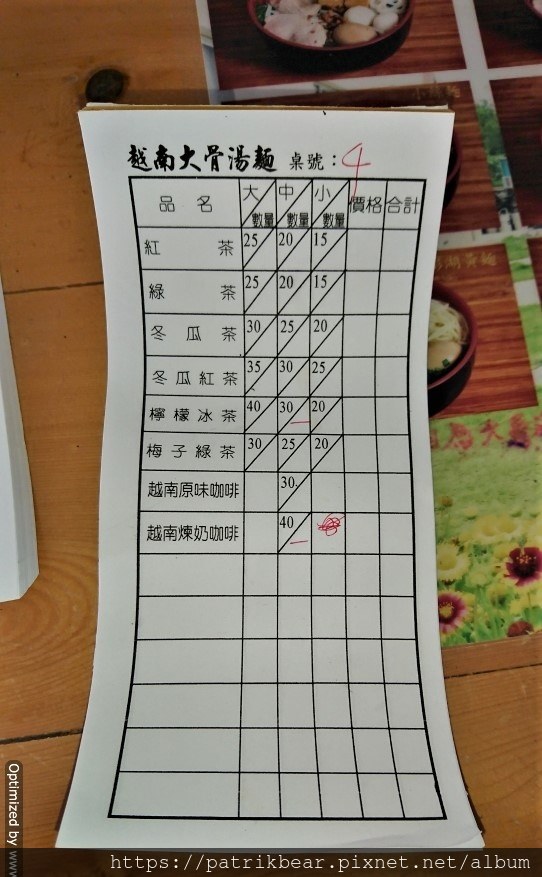 越南大骨湯麵 桌號：4
品名 大 數量 中 數量 小 數量 價格 合計
紅茶 25 20 15
綠茶 25 20 15
冬瓜茶 30 25 20
冬瓜紅茶 35 30 25
檸檬冰茶 40 30 一 20
梅子綠茶 30 25 20
越南原味咖啡 30
越南煉奶咖啡 40 一
Optimized by www
https://patrikbear.pixnet.net/album